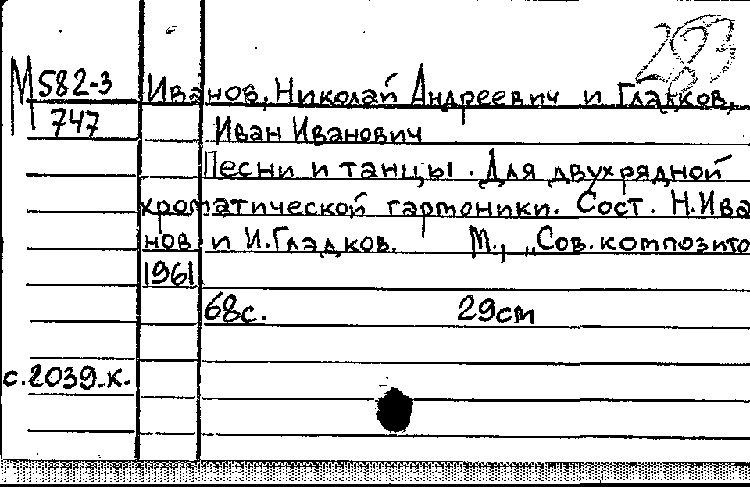 283
М 582-3 Иванов, Николай Андреевич и Гладков,
747 Иван Иванович
Песни и танцы. Для двухрядной
хроматической гармоники. Сост. Н. Ива
нов и И. Гладков. М., „Сов. композито
1961
68с. 29см
с.2039.к.